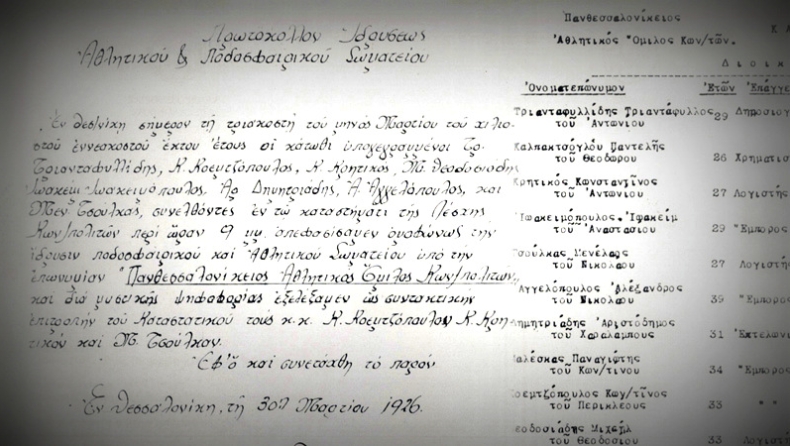 Πρωτόκολλον Ιδρύσεως
Αθλητικού & Ποδοσφαιρικού Σωματείου
Εν Θεσ/νίκη σήμερον τη τριακοστή του μηνός Μαρτίου του χιλιο-
στού εννεακοστού έκτου έτους οι κάτωθι υπογεγραμμένοι
Τριανταφυλλίδης, Κ. Κοεμτζόπουλος, Κ. Κρητικός, Μ. Θεοδοσιάδης
Ιωακείμ Ιωακειμόπουλος, Αρ. Δημητριάδης, Α. Αγγελόπουλος, και
Μεν. Τσούλκας, συνελθόντες εν τω καταστήματι της Λέσχης
Κων/πολιτών περί ώραν 9 μμ. απεφασίσαμεν ομοφώνως την
ίδρυσιν ποδοσφαιρικού και Αθλητικού Σωματείου υπό την
επωνυμίαν "Πανθεσσαλονίκειος Αθλητικός Όμιλος Κων/πολιτών,,
και διά μυστικής ψηφοφορίας εξελέξαμεν ως συντακτικήν
επιτροπήν του Καταστατικού τους κ.κ. Κ. Κοεμτζόπουλον Κ. Κρη-
τικόν και Μ. Τσούλκαν.
Εφ' ό και συνετάχθη το παρόν
Εν Θεσσαλονίκη, τη 30ή Μαρτίου 1926.
Πανθεσσαλονίκειος
Ἀθλητικός Ὅμιλος Κων/τῶν.
Διοικ
Ὀνοματεπώνυμον Ἐτῶν Ἐπάγγε
Τριανταφυλλίδης Τριαντάφυλλος 29 Δημοσιογ
τοῦ Ἀντωνίου
Καλπακτσόγλου Παντελῆς
τοῦ Θεοδώρου 26 Χρηματισ
Κρητικός Κωνσταντῖνος
τοῦ Ἀντωνίου 27 Λογιστής
Ἰωακειμόπουλος Ἰωακείμ
τοῦ Ἀναστασίου 29 Ἔμπορος
Τσούλκας Μενέλαος
τοῦ Νικολάου 27 Λογιστής
Ἀγγελόπουλος Ἀλέξανδρος
τοῦ Νικολάου 39 Ἔμπορος
Δημητριάδης Ἀριστόδημος
τοῦ Χαραλάμπους 31 Ἐκτελωνι
αλέσκας Παναγιώτης
τοῦ Κων/τίνου 34 Ἔμπορ
οεμτζόπουλος Κων/τῖνος
τοῦ Περικλέους 33 " "
εοδοσιάδης Μιχαήλ
τοῦ Θεοδοσίου 33 Λογιστ